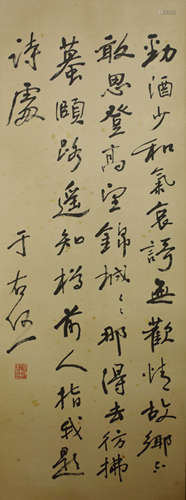 勁酒少和氣哀謌無歡情故鄉不
敢思登高望錦城々那得去彷拂
蟇頤路遙知樽前人指我題
詩處
于右任